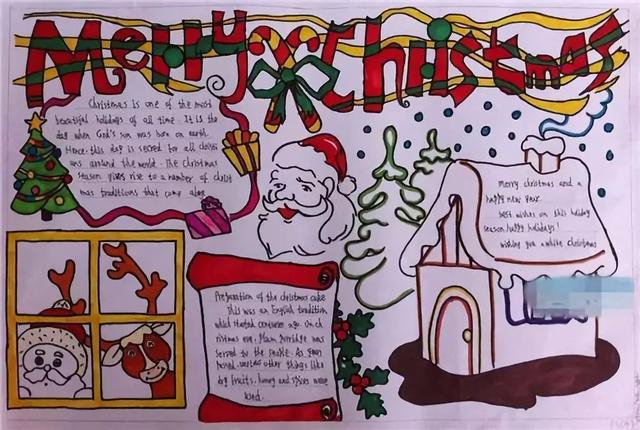 Merry Christmas
Christmas is one of the most
beautiful holidays of all time. It is the
day when God's son was born on earth.
Hence, this day is sacred for all
around the world. The Christmas
season gives rise to a number of christ
mas traditions that come along
merry christmas and a
happy new year.
best wishes on this holiday
season, happy holidays!
wishing you a white christmas
Preparation of the christmas cake
This was an English tradition
which started centuries ago. On ch
ristmas eve, Plum Porridge was
served to the people. As years
passed, other things like
dry fruits, honey and spices were